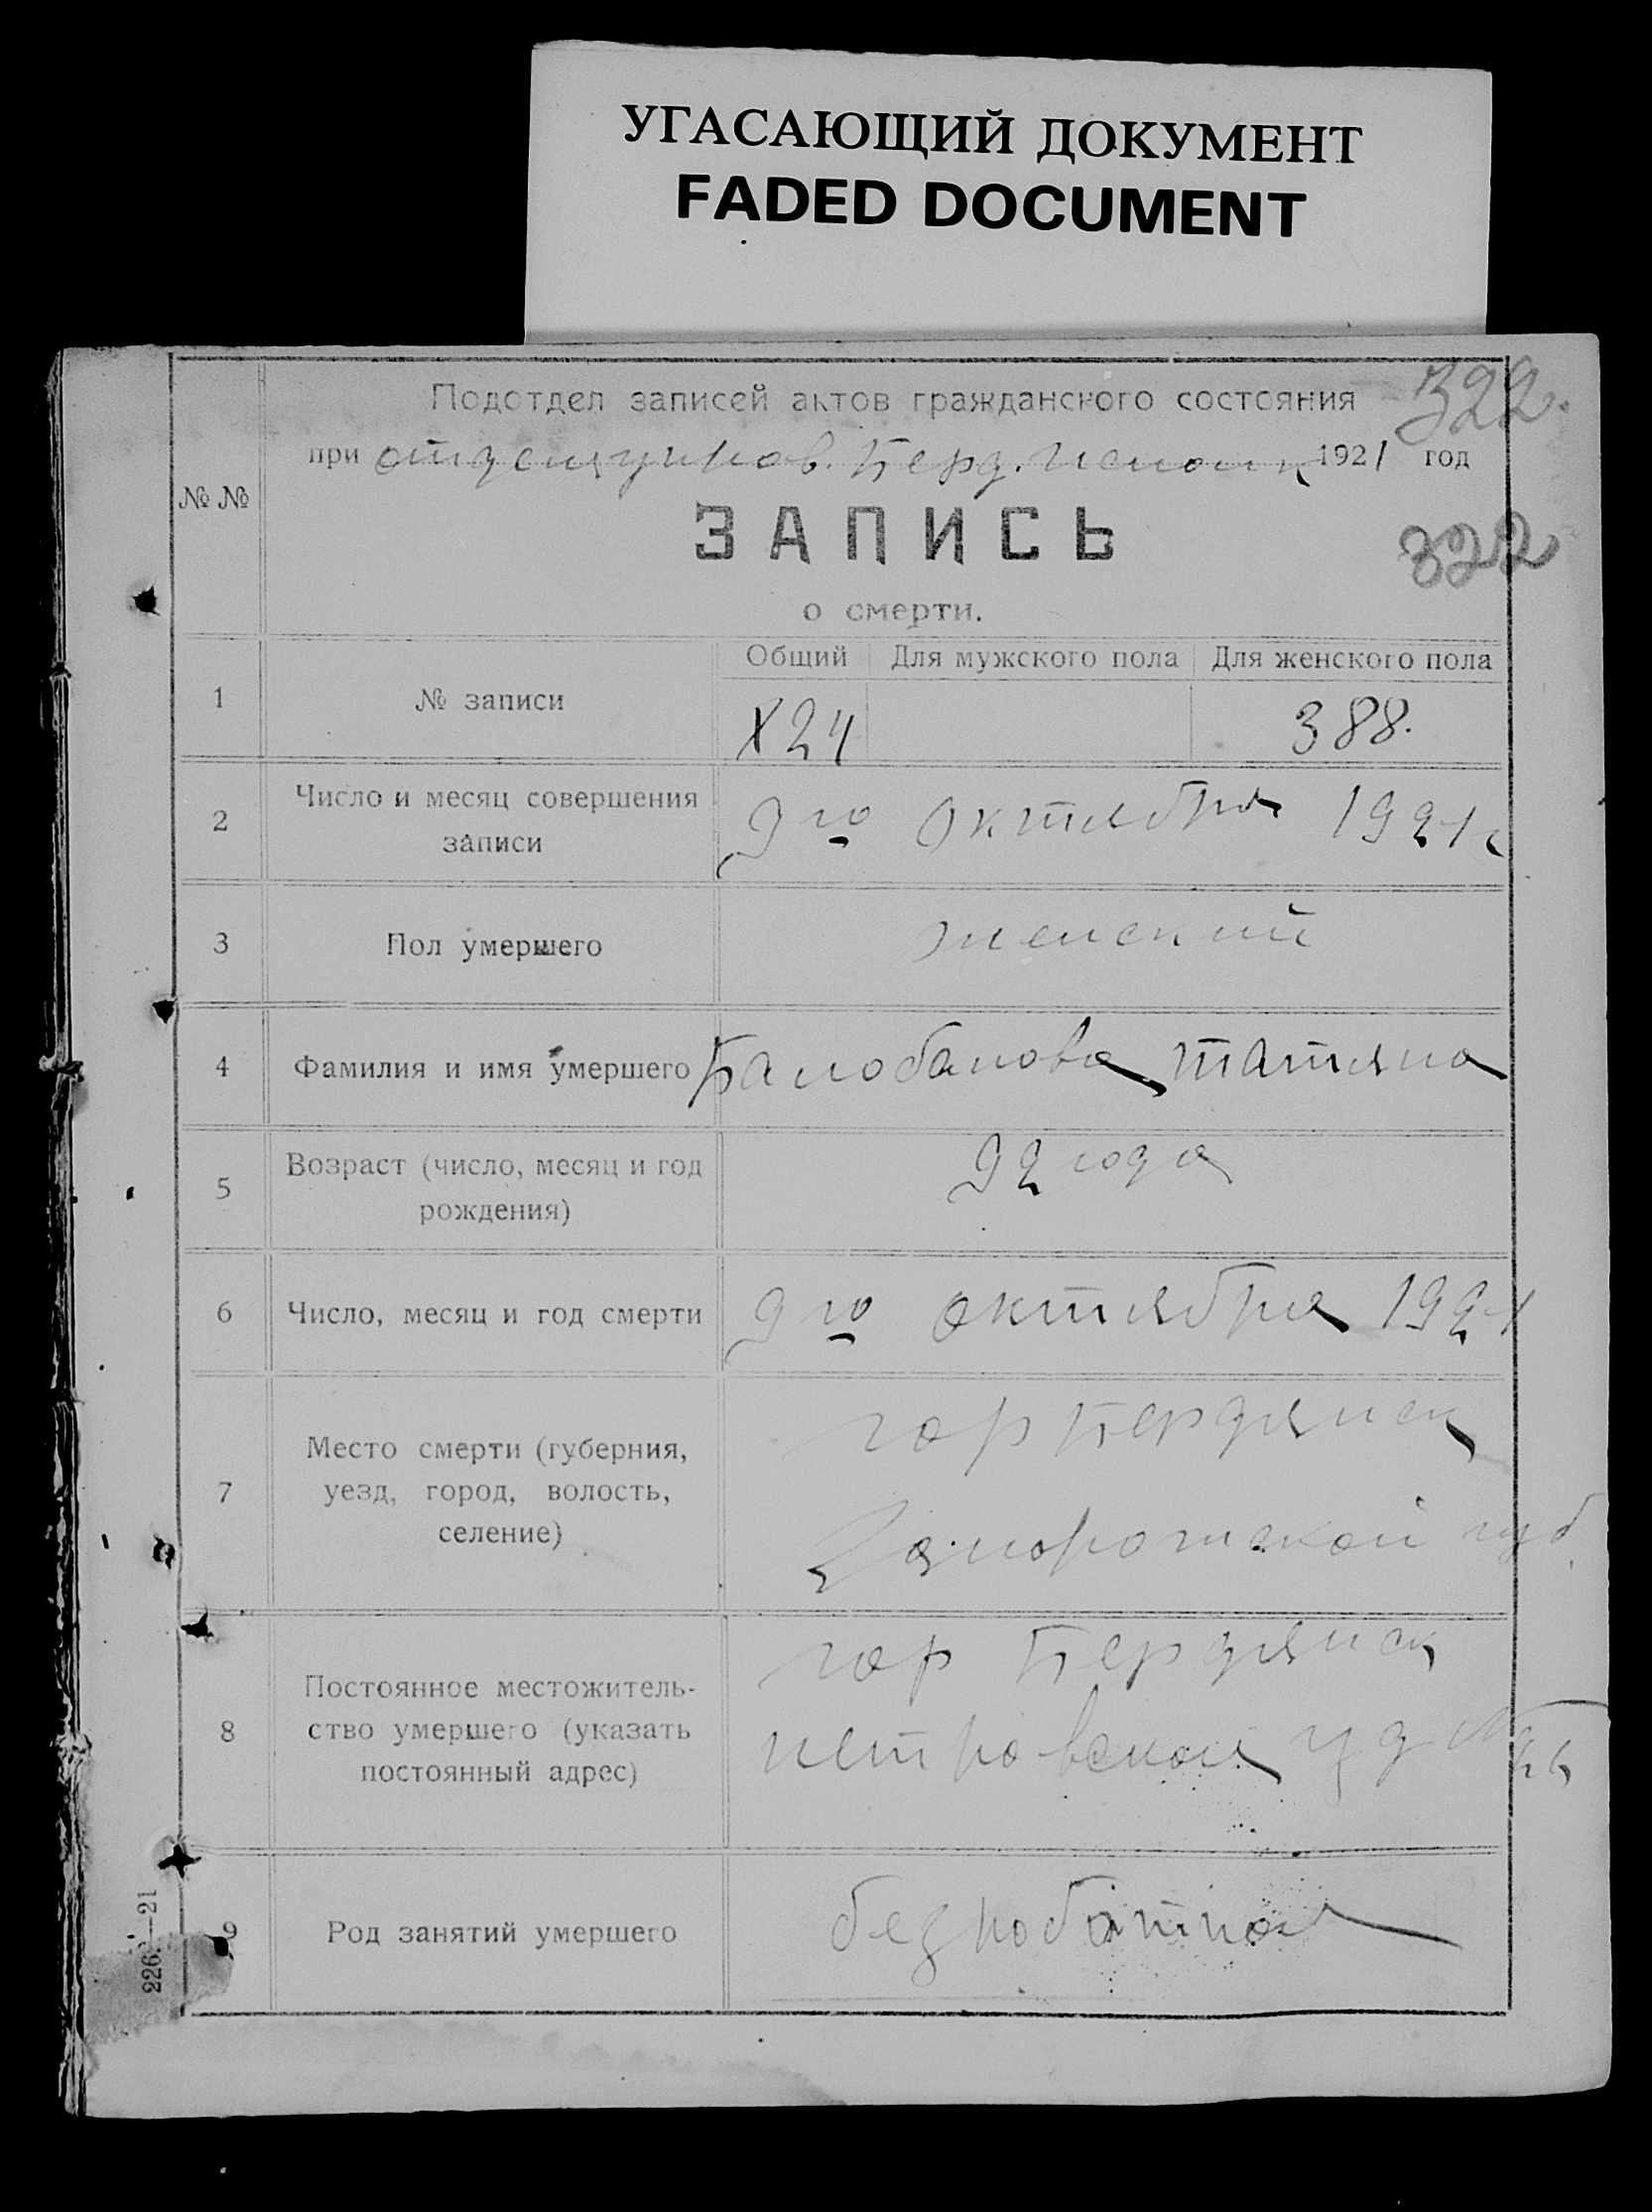 УГАСАЮЩИЙ ДОКУМЕНТ
FADED DOCUMENT
Подотдел записей актов гражданского состояния
322.
при отделуправ. Берд. Исполк 1921 год
№ №
ЗАПИСЬ
322
о смерти.
Общий Для мужского пола Для женского пола
1 № записи 824 388.
2 Число и месяц совершения записи 9го Октября 1921 г
3 Пол умершего женский
4 Фамилия и имя умершего Балобанова Татяна
5 Возраст (число, месяц и год рождения) 92 года
6 Число, месяц и год смерти 9го октября 1921
7 Место смерти (губерния, уезд, город, волость, селение) гор Бердянск
Запорожской губ
8 Постоянное местожительство умершего (указать постоянный адрес) гор Бердянск
петровская №
9 Род занятий умершего безработная